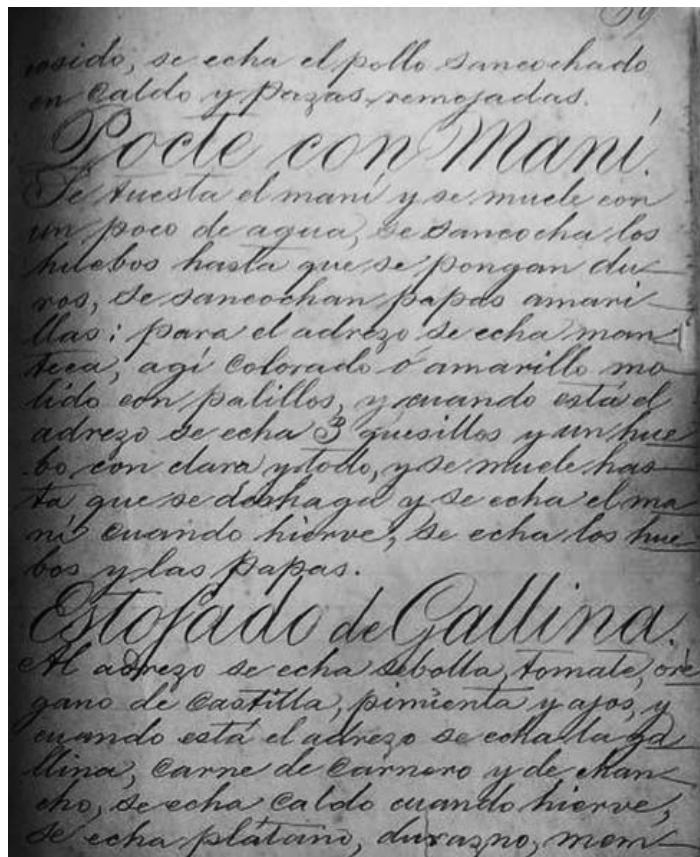 cosido, se echa el pollo sancochado
en caldo y pazas remojadas.
Pocte con Maní.
Se tuesta el maní y se muele con
un poco de agua, se sancocha los
huebos hasta que se pongan du-
ros, se sancochan papas amari-
llas; para el adrezo se echa man-
teca, agí colorado ó amarillo mo
lido con palillos, y cuando está el
adrezo se echa 3 quesillos y un hue
bo con clara y todo, y se muele has-
ta que se deshaga y se echa el ma
ní cuando hierve, se echa los hue
bos y las papas.
Estofado de Gallina.
Al adrezo se echa sebolla, tomate, oré
gano de castilla, pimienta y ajos, y
cuando está el adrezo se echa la ga
llina, carne de carnero y de chan-
cho, se echa caldo cuando hierve,
se echa plátano, durazno, mem-